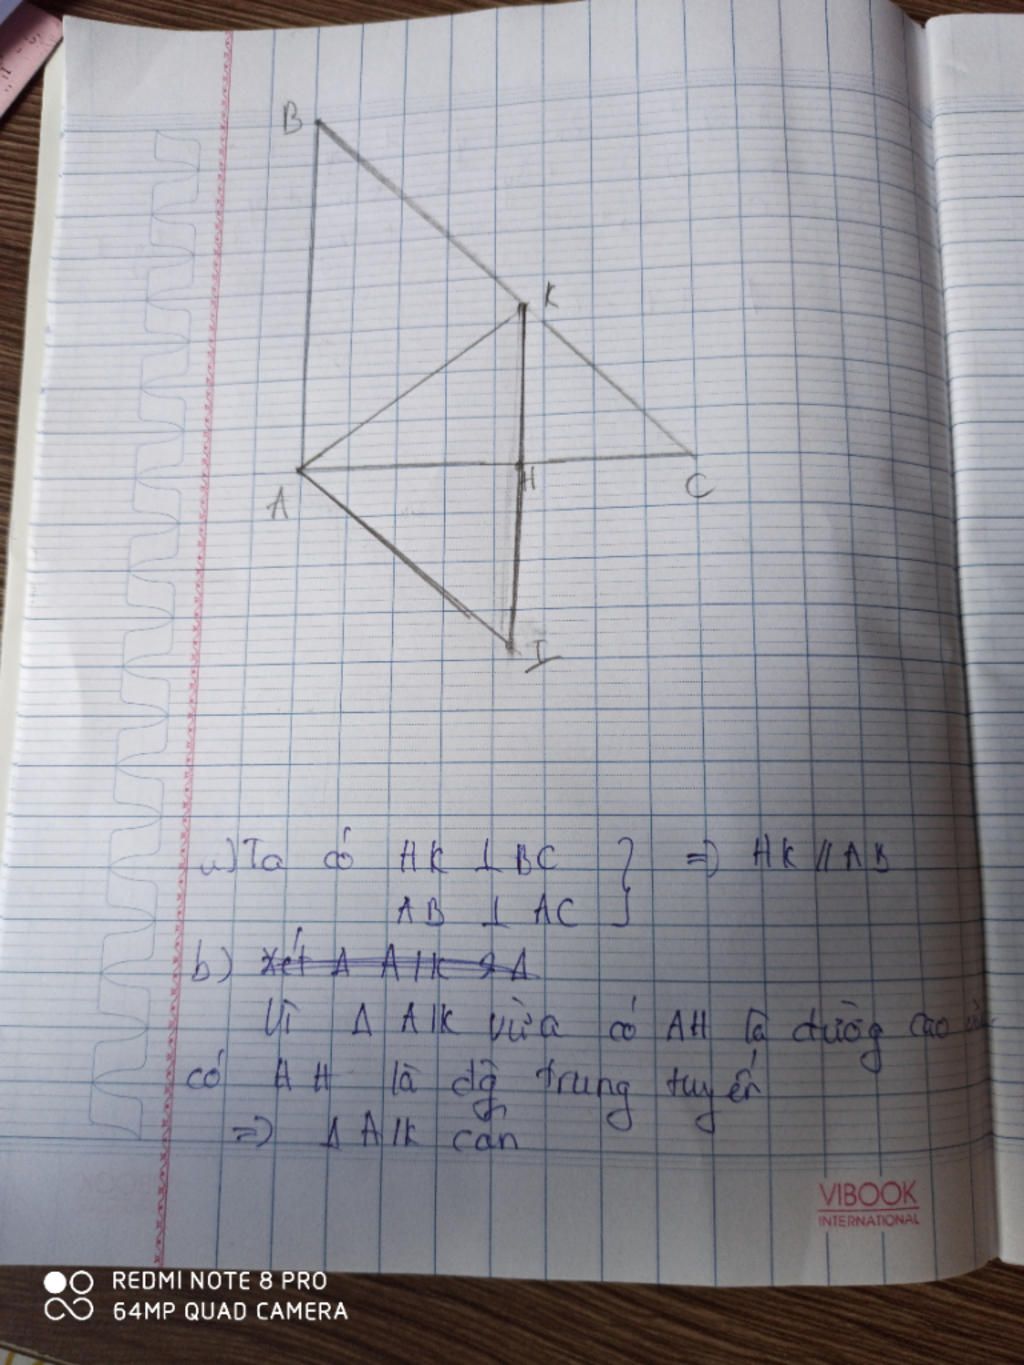 B
K
A
H
C
I
a) Ta có HK ⊥ BC } => HK // AB
AB ⊥ AC
b) xét Δ AIK
Vì Δ AIK vừa có AH là đường cao vừa
có AH là đg trung tuyến
=> Δ AIK cân
VIBOOK
INTERNATIONAL
REDMI NOTE 8 PRO
64MP QUAD CAMERA